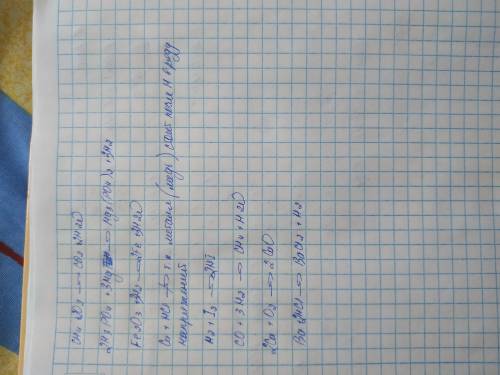 CH4 + 2O2 => CO2 + 2H2O
2H3PO4 + 3Mg => Mg3(PO4)2 + 3H2
Fe2O3 + 3H2 => 2Fe + 3H2O
Cu + HCl -/-> т.к. металл (медь) стоит после H в ряду
напряжений
H2 + I2 => 2HI
CO + 3H2 => CH4 + H2O
2Ca + O2 => 2CaO
Ba + 2HCl => BaCl2 + H2